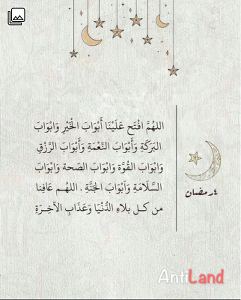 اللهمَّ افْتَح عَلَيْنَا أَبْوَابَ الْخَيْرِ وَابْوَابَ
البَرَكَةِ وَأَبْوَابَ النَّعْمَةِ وَأَبْوَابَ الرِّزْقِ
وَابْوَابَ القُوَّةِ وَابْوَابَ الصّحة وابْوَابَ
السَّلَامَةِ وَأَبْوَابَ الجَنَّةِ . اللهُـم عَافِنا
من كـل بـلاءِ الدُّنْيَا وَعَذَابِ الآخِـرَةِ
٤ رمضان
AntiLand